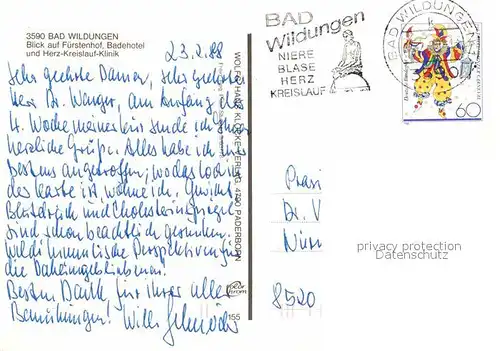 3590 BAD WILDUNGEN
Blick auf Fürstenhof, Badehotel
und Herz-Kreislauf-Klinik
23.2.88
Sehr geehrte Damen, sehr geehrter
Herr Dr. Wenger, am Anfang der
4. Woche meiner Kur sende ich Ihnen
herzliche Grüße. Alles habe ich hier
bestens angetroffen, wo das Loch in
der Karte ist, wohne ich. Gewicht,
Blutdruck und Cholesterinspiegel
sind schon beachtlich gesunken,
Perspektiven für
die Daheimgebliebenen!
Besten Dank für Ihrer aller
Bemühungen! Willi
WOLFGANG HANS KLOCKE VERLAG, 4790 PADERBORN
155
BAD
Wildungen
NIERE
BLASE
HERZ
KREISLAUF
BAD WILDUNGEN
60
Praxi
Dr. V
Nürn
8520
privacy protection
Datenschutz